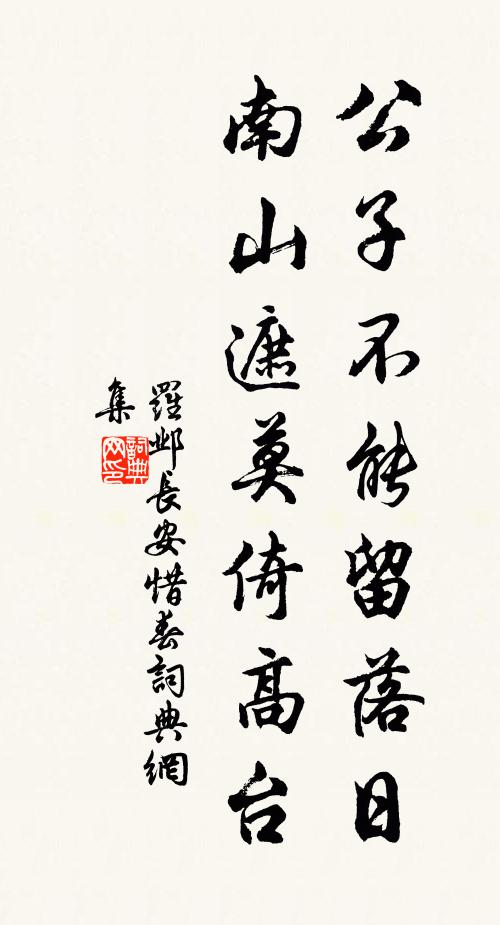 公子不能留落日
南山遮莫倚高台
羅邺長安惜春詞典網
集
詞典
网印